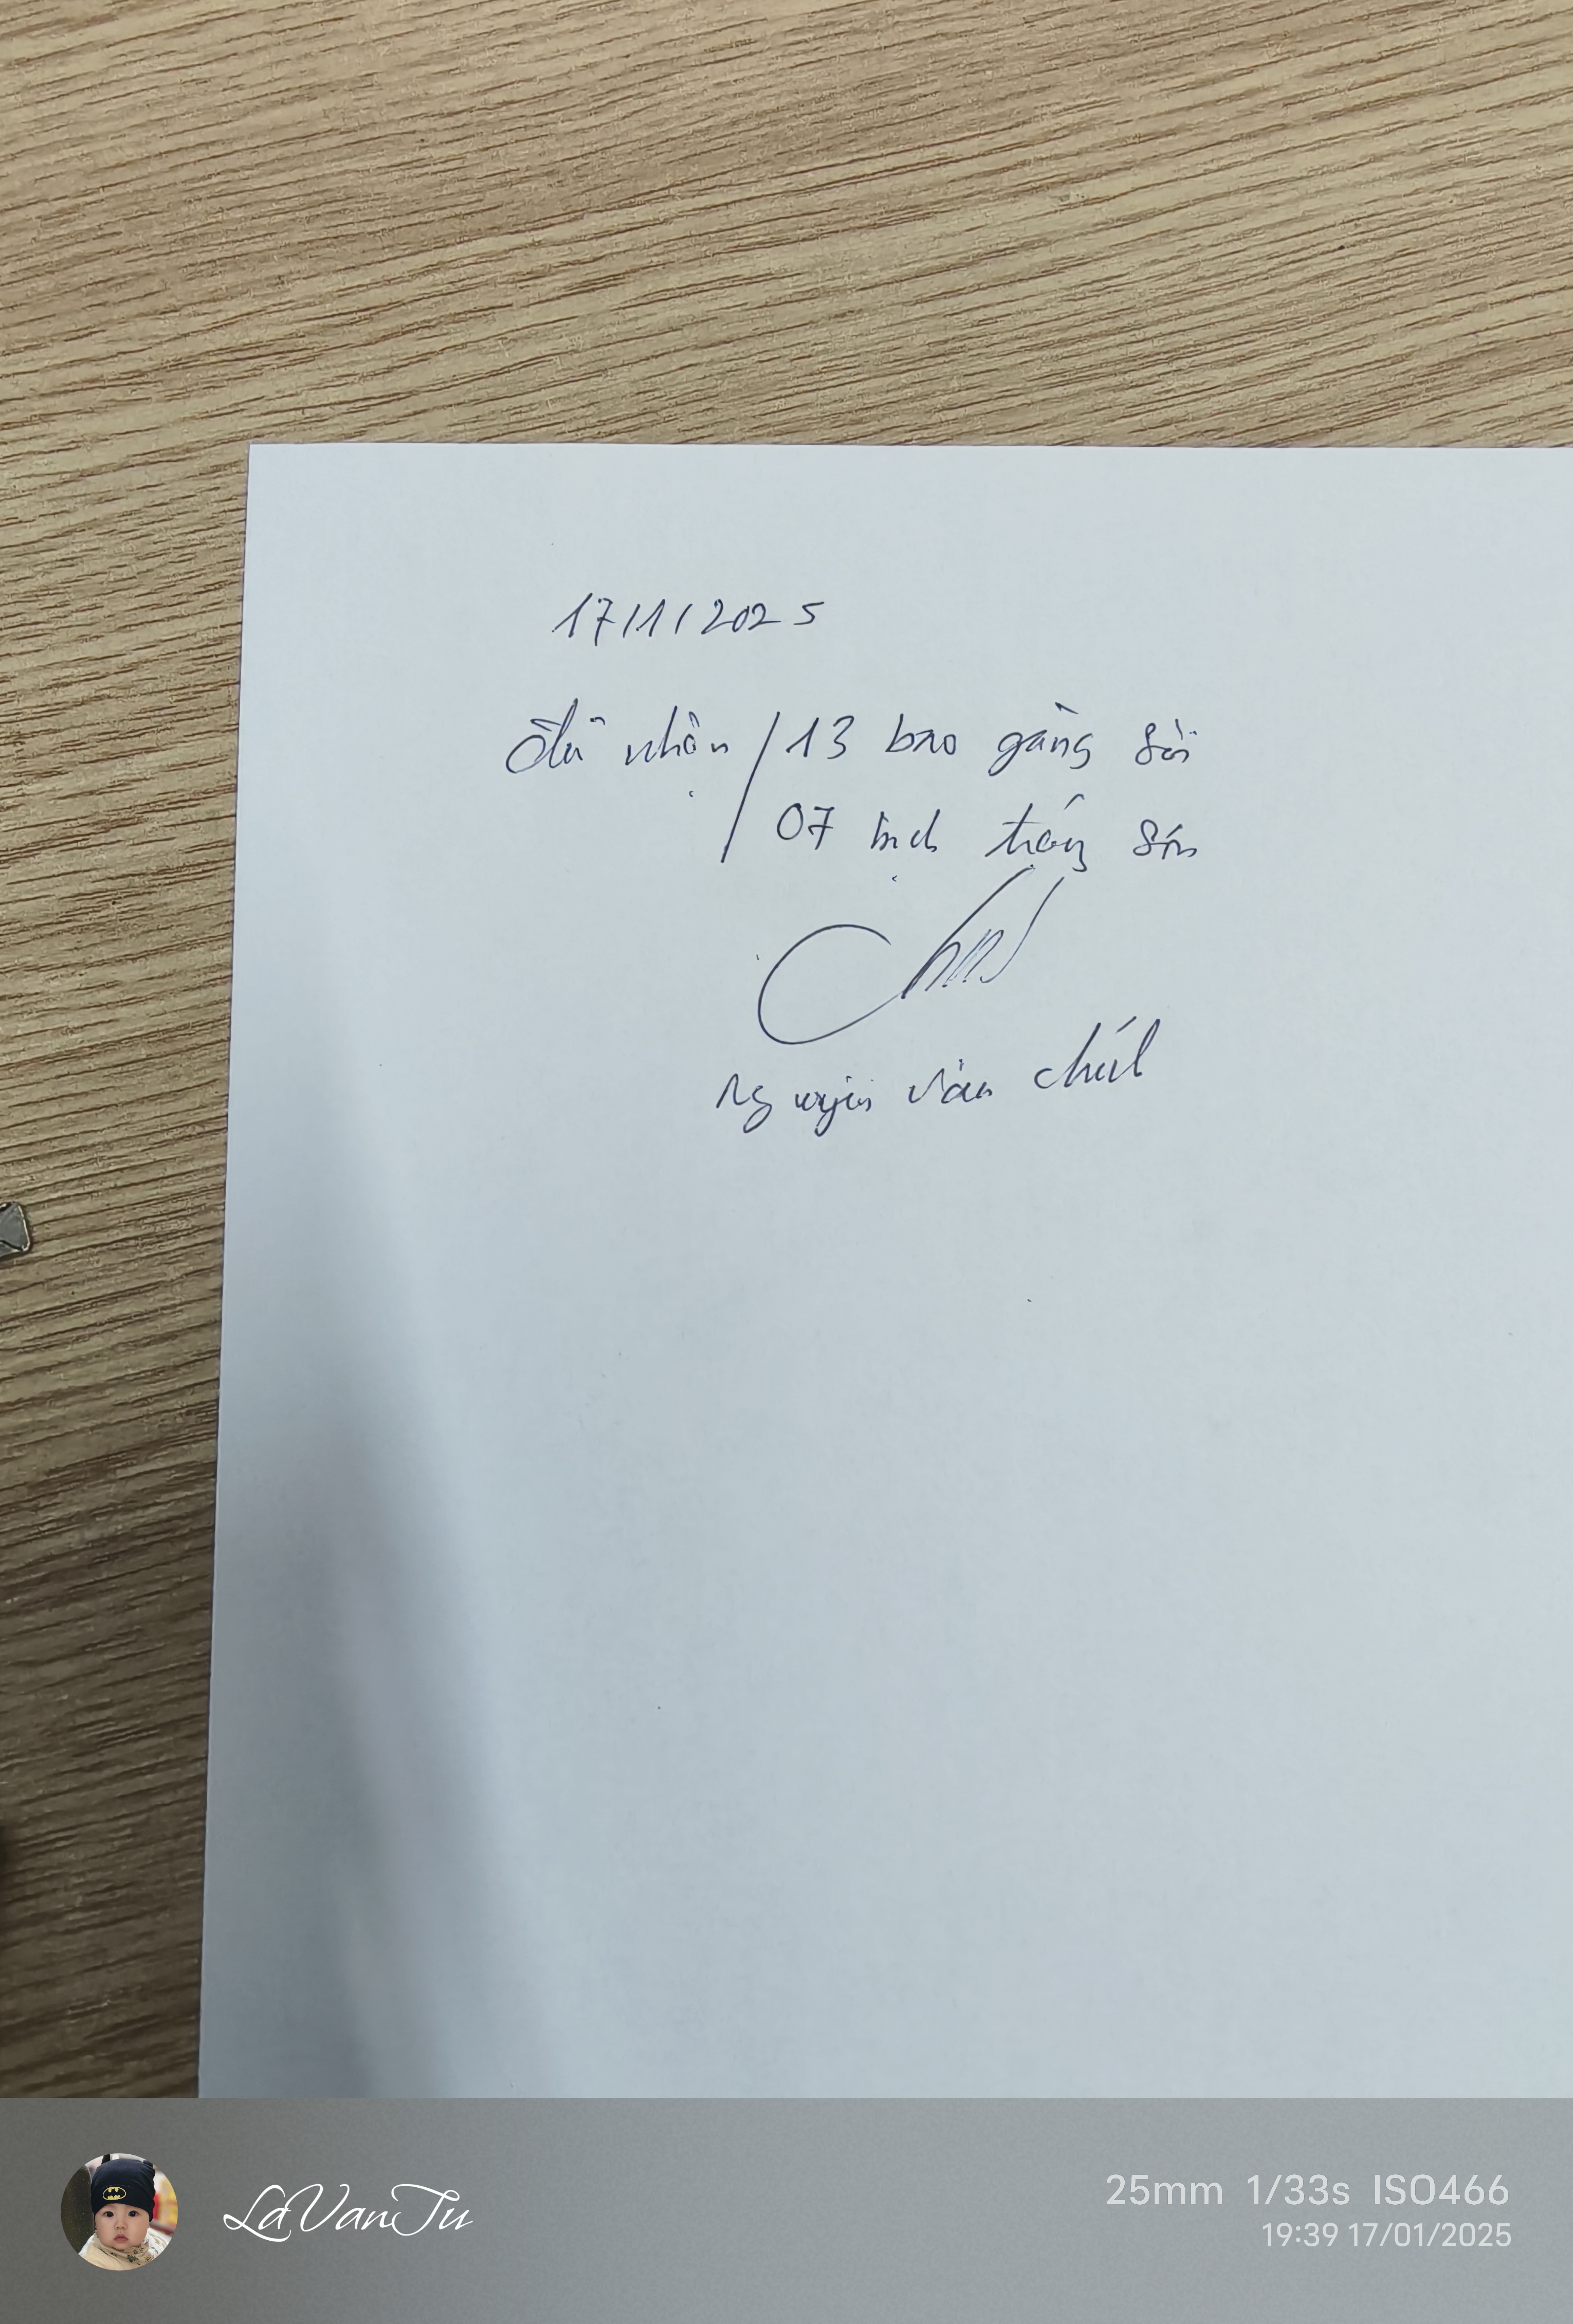 17/1/2025
Đã nhận / 13 bao găng sòi
07 bịch trắng
Nguyễn Văn Chút
LaVanTu
25mm 1/33s ISO466
19:39 17/01/2025